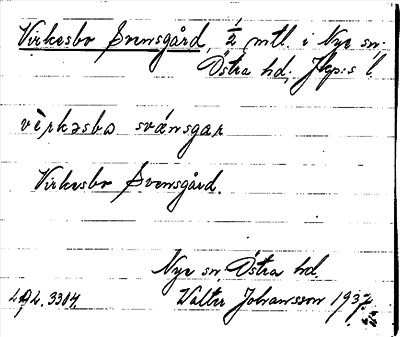 Virkesbo Svensgård, 1/2 mtl. i Nye sn.
Östra hd; Jkp:s l.
vèrkəsbo svánsgar
Virkesbo Svensgård.
Nye sn Östra hd.
Walter Johansson 1937